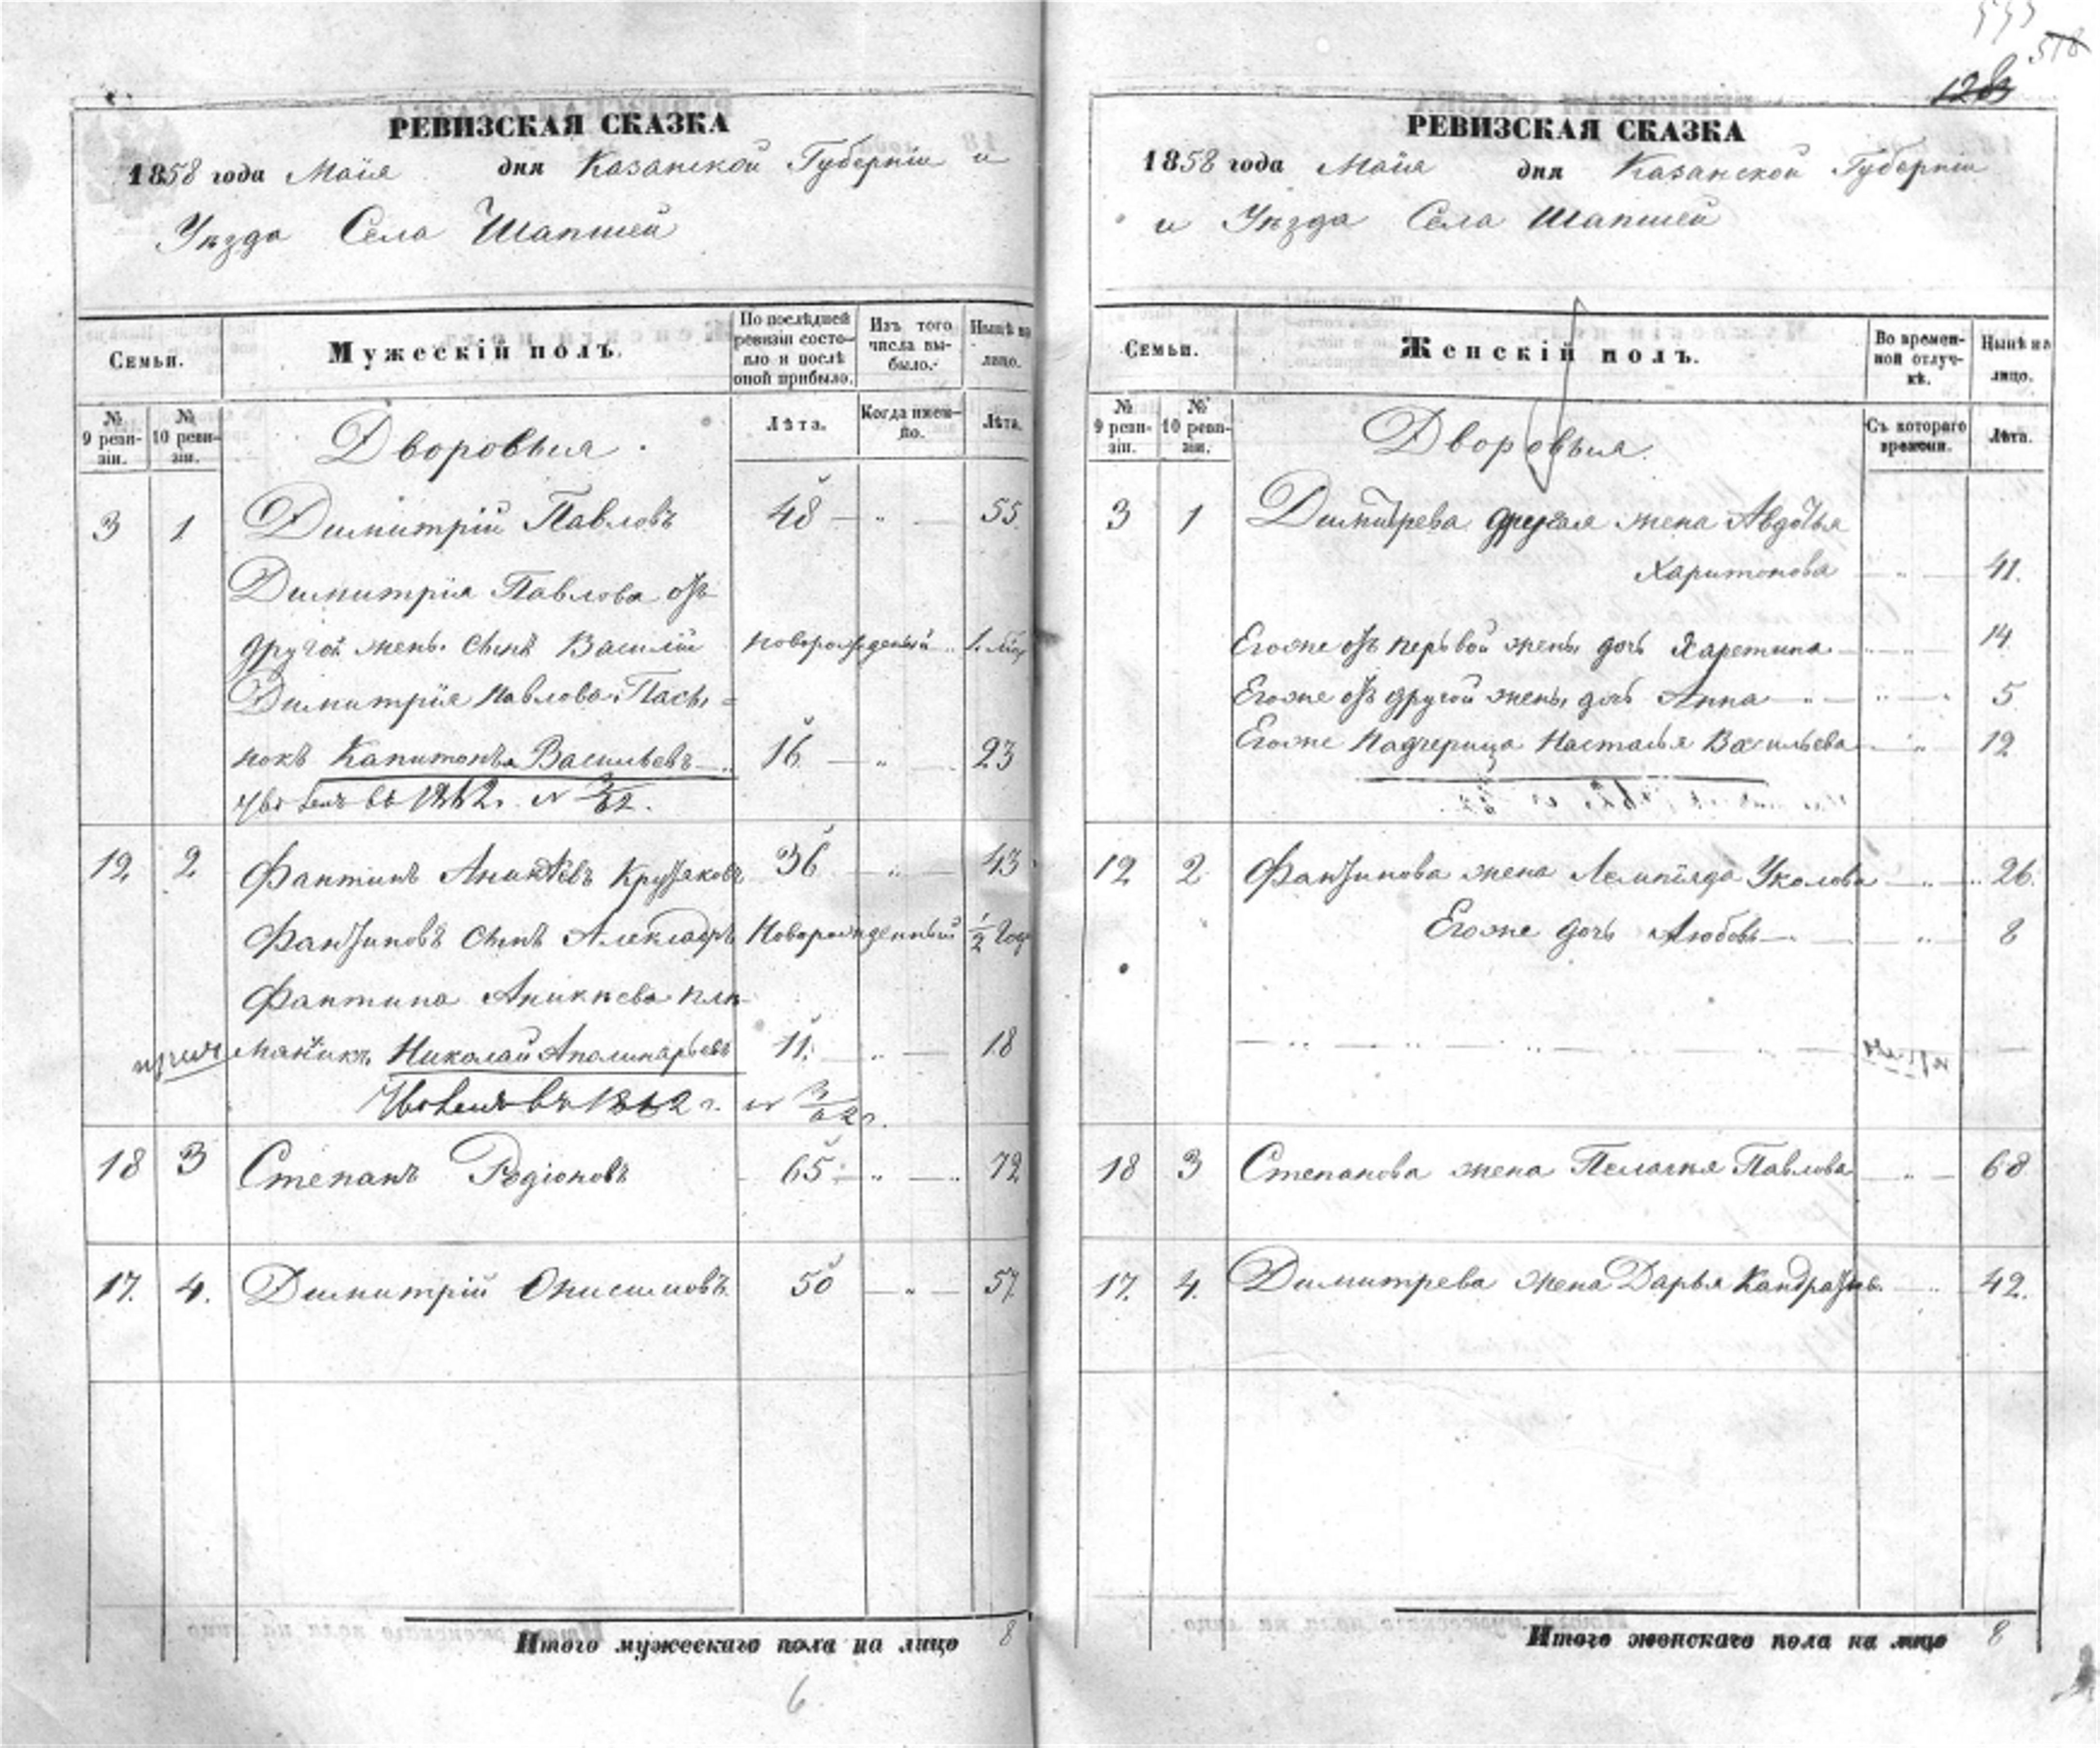 РЕВИЗСКАЯ СКАЗКА
1858 года Маiя дня Казанской Губернiи и
Уѣзда Села Шапшей
Семьи.
Мужескiй полъ.
По послѣдней ревизiи состояло и послѣ оной прибыло.
Изъ того числа выбыло.
Нынѣ на лицо.
№ 9 ревизiи.
№ 10 ревизiи.
Дворовыя.
Лѣта.
Когда именно.
Лѣта.
3 1 Димитрiй Павловъ 48 — „ — 55.
Димитрiя Павлова отъ
другой жены сынъ Василiй новорожденный „ 1. мѣс
Димитрiя Павлова Пасы=
нокъ Капитонъ Васильевъ 16 — „ — 23
въ 1862 г. № 3/62.
12 2 Фантинъ Аникѣевъ Крутяковъ 36 — „ — 43
Фантиновъ сынъ Александръ Новорожденный 1/2 Года
Фантина Аникѣева пле-
прим мянникъ Николай Аполинарьевъ 11. „ — 18
въ 1862 г. № 3/62 г.
18 3 Степанъ Родiоновъ 65 — „ — 72
17. 4. Димитрiй Онисимовъ 50 — „ — 57.
Итого мужескаго пола на лицо 8
6
555
578
128
РЕВИЗСКАЯ СКАЗКА
1858 года Маiя дня Казанской Губернiи
и Уѣзда Села Шапшей
Семьи.
Женскiй полъ.
Во временной отлучкѣ.
Нынѣ на лицо.
№ 9 ревизiи.
№ 10 ревизiи.
Дворовыя.
Съ котораго времени.
Лѣта.
3 1 Димитрева другая жена Авдотья
Харитонова — „ — 41.
Егоже отъ первой жены дочь Харетина — „ — 14
Егоже отъ другой жены дочь Анна — „ — 5
Егоже Падчерица Насталья Васильева — „ — 12
12 2 Фантинова жена Уколова — „ — 26.
Егоже дочь Любовь — „ — 8
18 3 Степанова жена Пелагея Павлова — „ — 68
17. 4. Димитрева жена Дарья Кандратьев. — „ — 42.
Итого женскаго пола на лицо 8